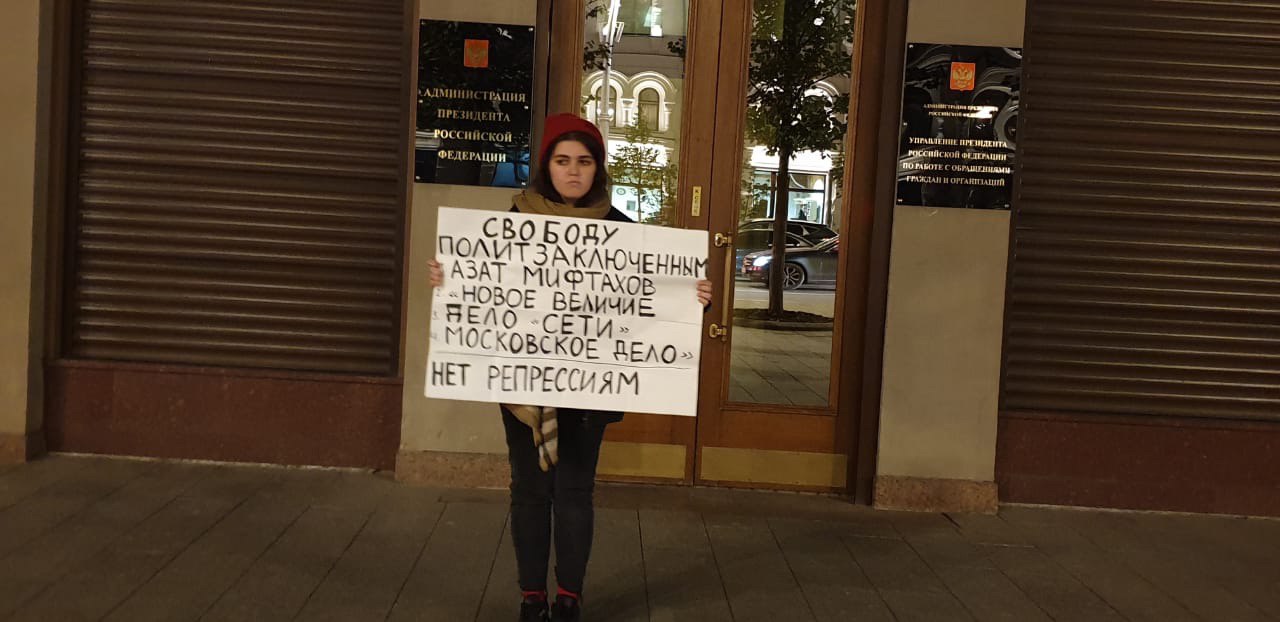 АДМИНИСТРАЦИЯ
ПРЕЗИДЕНТА
РОССИЙСКОЙ
ФЕДЕРАЦИИ
СВОБОДУ
ПОЛИТЗАКЛЮЧЕННЫМ
1. АЗАТ МИФТАХОВ
2. «НОВОЕ ВЕЛИЧИЕ
3. ДЕЛО «СЕТИ»
4. МОСКОВСКОЕ ДЕЛО»
НЕТ РЕПРЕССИЯМ
АДМИНИСТРАЦИЯ ПРЕЗИДЕНТА
РОССИЙСКОЙ ФЕДЕРАЦИИ
УПРАВЛЕНИЕ ПРЕЗИДЕНТА
РОССИЙСКОЙ ФЕДЕРАЦИИ
ПО РАБОТЕ С ОБРАЩЕНИЯМИ
ГРАЖДАН И ОРГАНИЗАЦИЙ